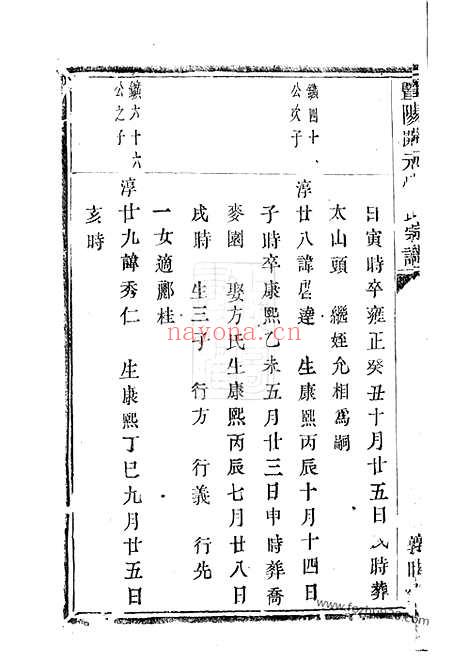 暨陽 宗譜
日寅時卒雍正癸丑十月廿五日戌時葬
太山頭 繼姪允相爲嗣
鐵四十
公次子
淳廿八諱啟達 生康熙丙辰十月十四日
子時卒康熙乙未五月廿三日申時葬喬
麥園 娶方氏生康熙丙辰七月廿八日
戌時 生三子 行方 行義 行先
一女適酈桂
鐵六十六
公之子
淳廿九諱秀仁 生康熙丁巳九月廿五日
亥時
nayona.cn